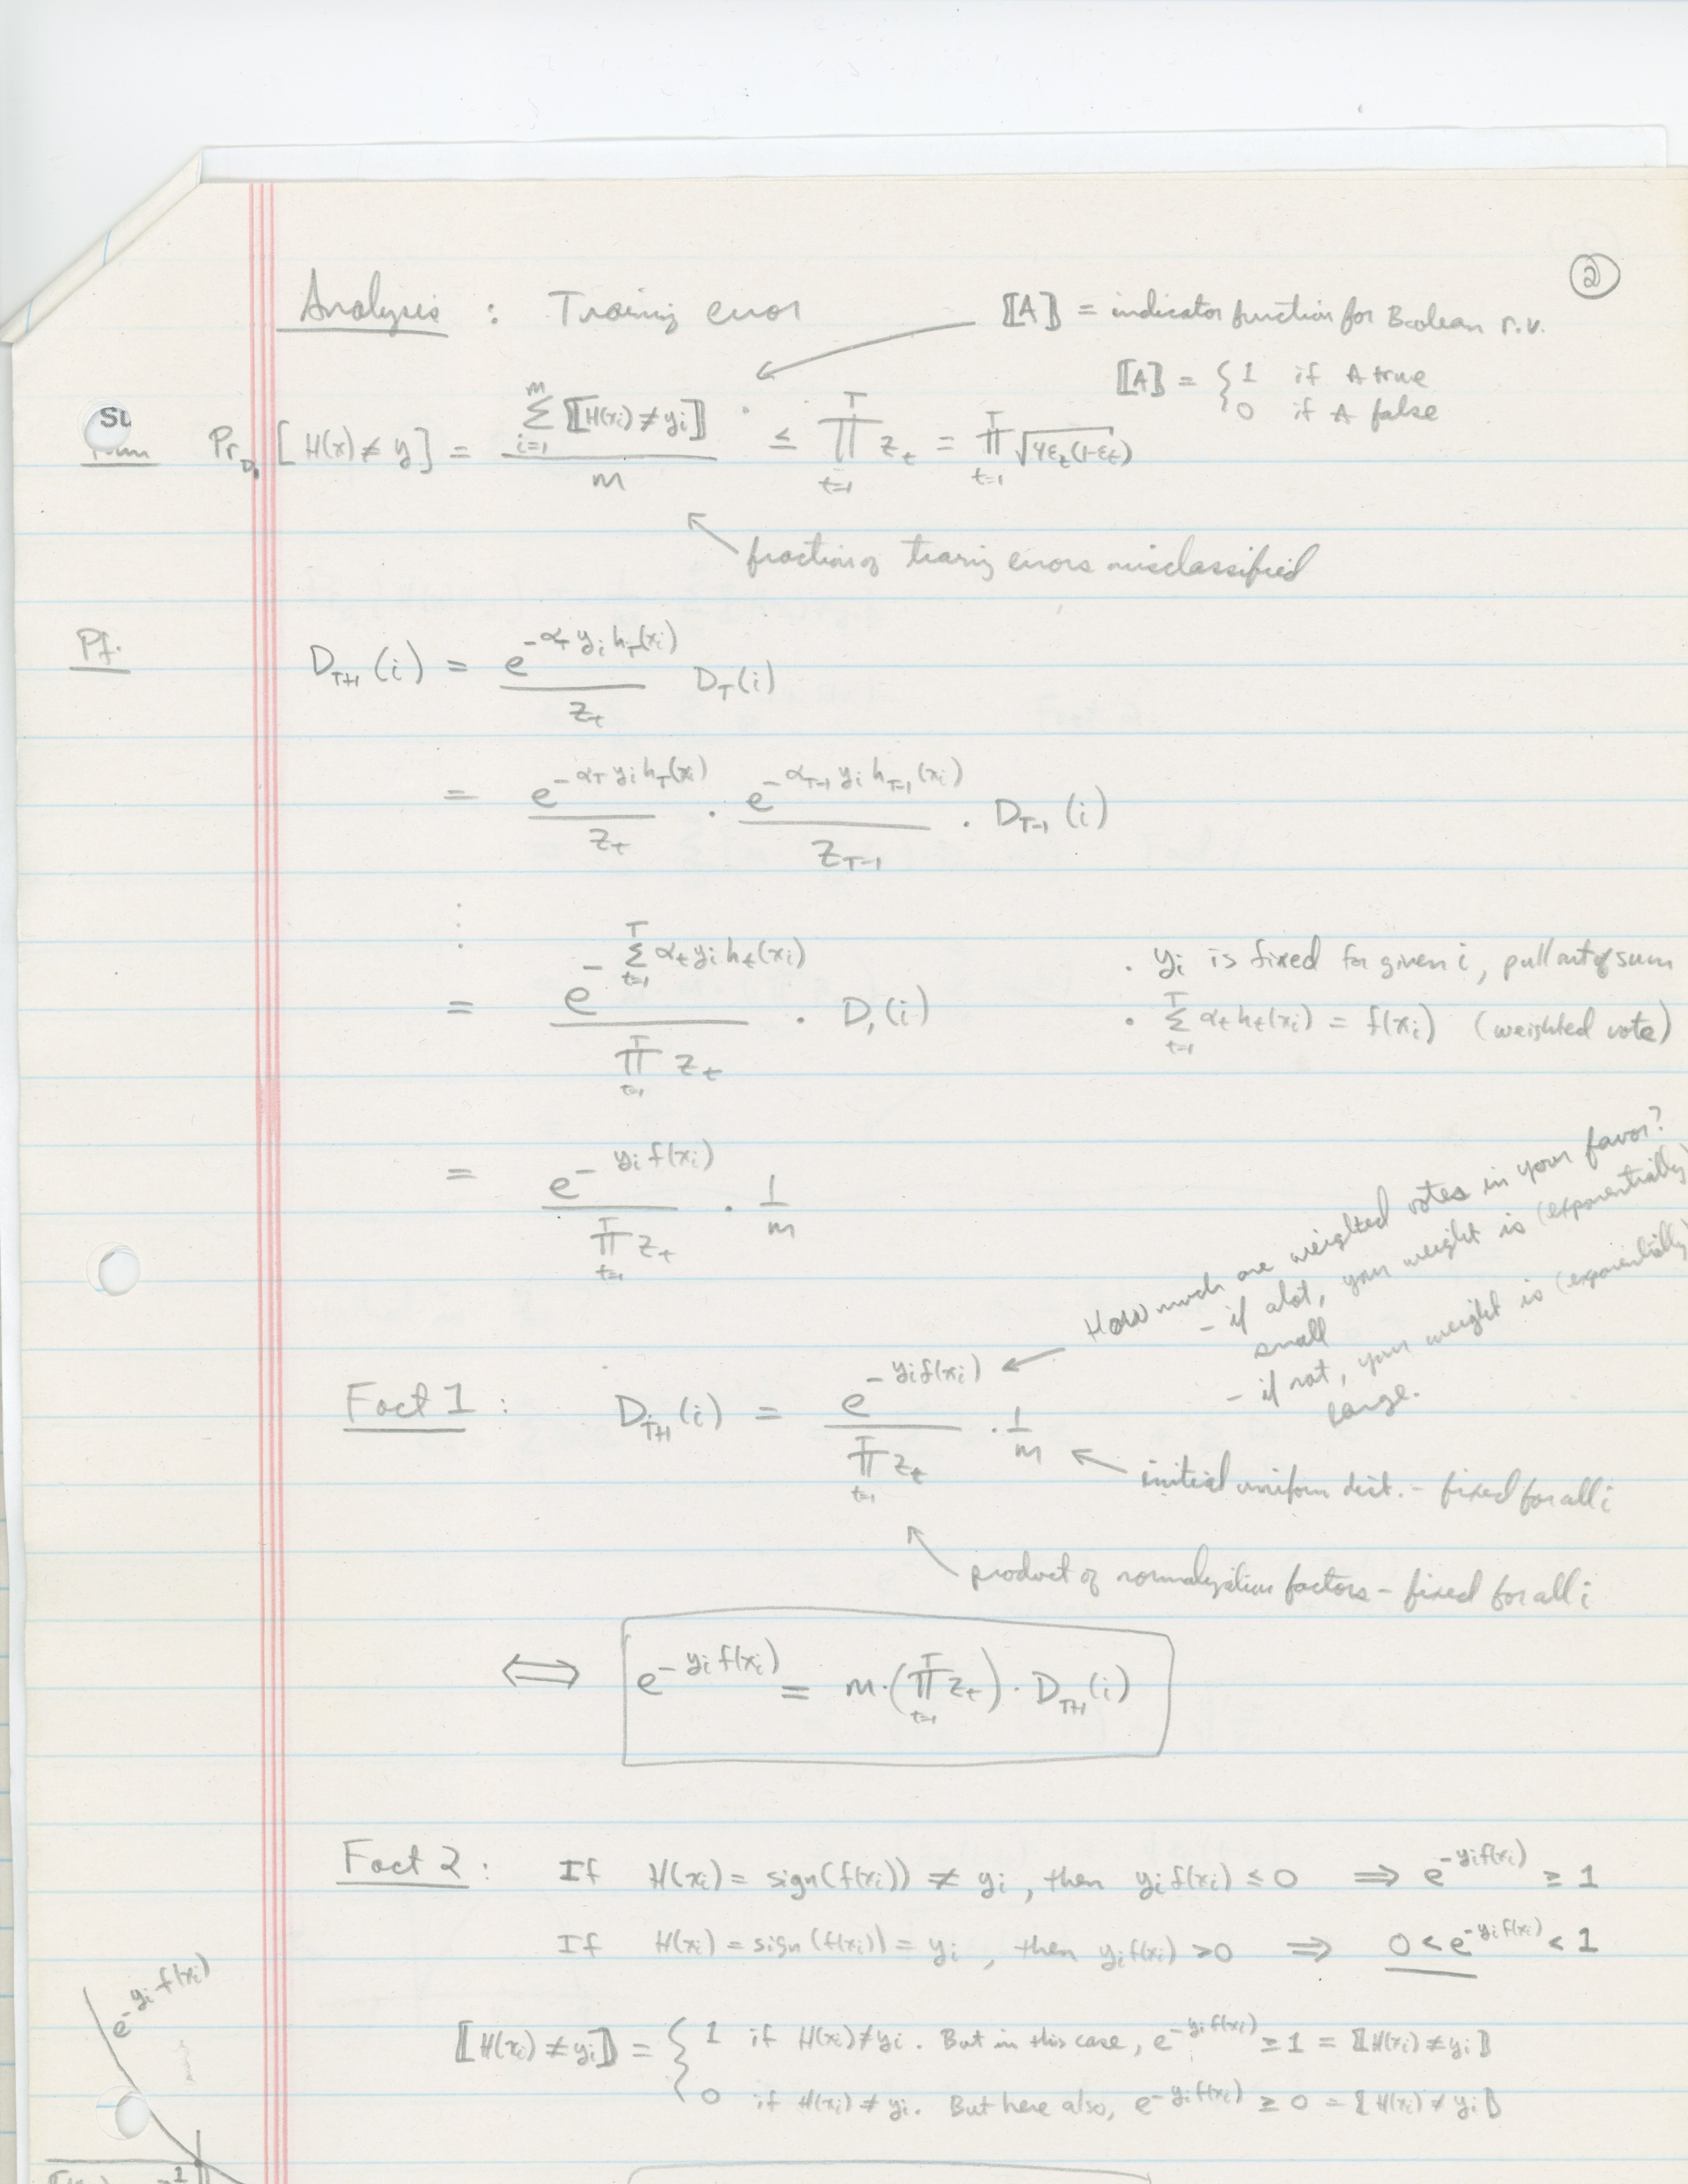 ②
Analysis : Training error
⟦A⟧ = indicator function for Boolean r.v.
⟦A⟧ = { 1 if A true
0 if A false
SL
Pr_{D_1} [ H(x) ≠ y ] = \frac{\sum_{i=1}^{m} ⟦H(x_i) ≠ y_i⟧}{m} ≤ \prod_{t=1}^{T} z_t = \prod_{t=1}^{T} \sqrt{4ε_t(1-ε_t)}
fraction of traing errors misclassified
Pf.
D_{T+1}(i) = \frac{e^{-α_T y_i h_T(x_i)}}{z_t} D_T(i)
= \frac{e^{-α_T y_i h_T(x_i)}}{z_t} · \frac{e^{-α_{T-1} y_i h_{T-1}(x_i)}}{z_{T-1}} · D_{T-1}(i)
⋮
= \frac{e^{-\sum_{t=1}^{T} α_t y_i h_t(x_i)}}{\prod_{t=1}^{T} z_t} · D_1(i)
· y_i is fixed for given i, pull out of sum
· \sum_{t=1}^{T} α_t h_t(x_i) = f(x_i) (weighted vote)
= \frac{e^{-y_i f(x_i)}}{\prod_{t=1}^{T} z_t} · \frac{1}{m}
How much are weighted votes in your favor?
- if alot, your weight is (exponentially)
small
- if not, your weight is (exponentially)
large.
Fact 1 : D_{T+1}(i) = \frac{e^{-y_i f(x_i)}}{\prod_{t=1}^{T} z_t} · \frac{1}{m}
initial uniform dist. - fixed for all i
product of normalization factors - fixed for all i
⟺ e^{-y_i f(x_i)} = m·(\prod_{t=1}^{T} z_t) · D_{T+1}(i)
Fact 2 : If H(x_i) = sign(f(x_i)) ≠ y_i, then y_i f(x_i) ≤ 0 ⟹ e^{-y_i f(x_i)} ≥ 1
If H(x_i) = sign(f(x_i)) = y_i, then y_i f(x_i) > 0 ⟹ 0 < e^{-y_i f(x_i)} < 1
e^{-y_i f(x_i)}
⟦H(x_i) ≠ y_i⟧ = { 1 if H(x_i) ≠ y_i. But in this case, e^{-y_i f(x_i)} ≥ 1 = ⟦H(x_i) ≠ y_i⟧
0 if H(x_i) ≠ y_i. But here also, e^{-y_i f(x_i)} ≥ 0 = ⟦H(x_i) ≠ y_i⟧
1